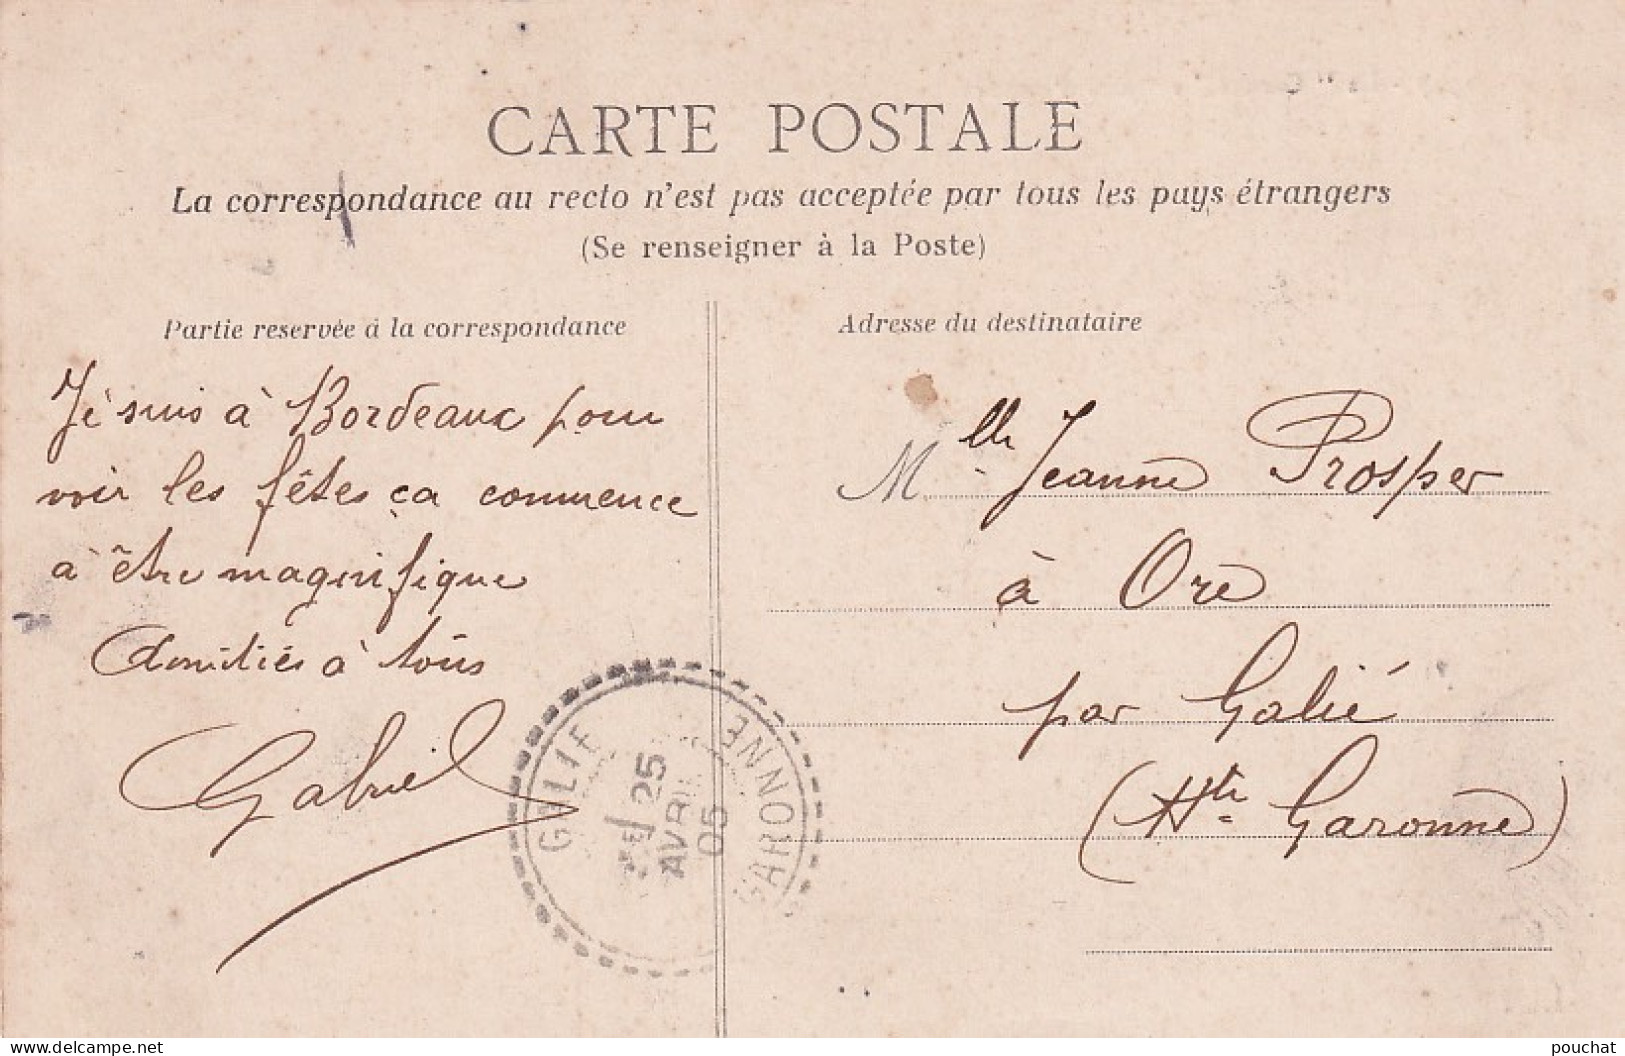 CARTE POSTALE
La correspondance au recto n'est pas acceptée par tous les pays étrangers
(Se renseigner à la Poste)
Partie reservée à la correspondance
Je suis à Bordeaux pour
voir les fêtes ça commence
à être magnifique
Amitiés à tous
Gabriel
Adresse du destinataire
Mlle Jeanne Prosper
à Ore
par Galié
(Hte Garonne)
GALIE
25
AVRIL
05
GARONNE
www.delcampe.net
pouchat